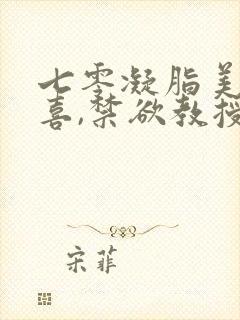 七零凝脂美
喜,禁欲教授
宋菲